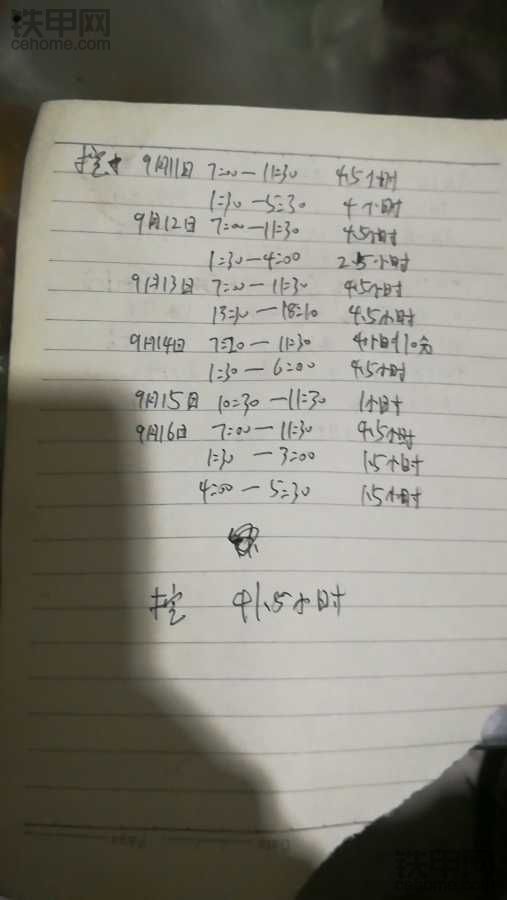 铁甲网
cehome.com
挖 9月11日 7=00-11=30 4.5小时
1=30-5=30 4小时
9月12日 7=00-11=30 4.5小时
1=30-4=00 2.5小时
9月13日 7=00-11=30 4.5小时
13=30-18=10 4.5小时
9月14日 7=20-11=30 4小时10分
1=30-6=00 4.5小时
9月15日 10=30-11=30 1小时
9月16日 7=00-11=30 4.5小时
1=30-3=00 1.5小时
4=00-5=30 1.5小时
挖 41.5小时
Date Page
铁甲网
cehome.com